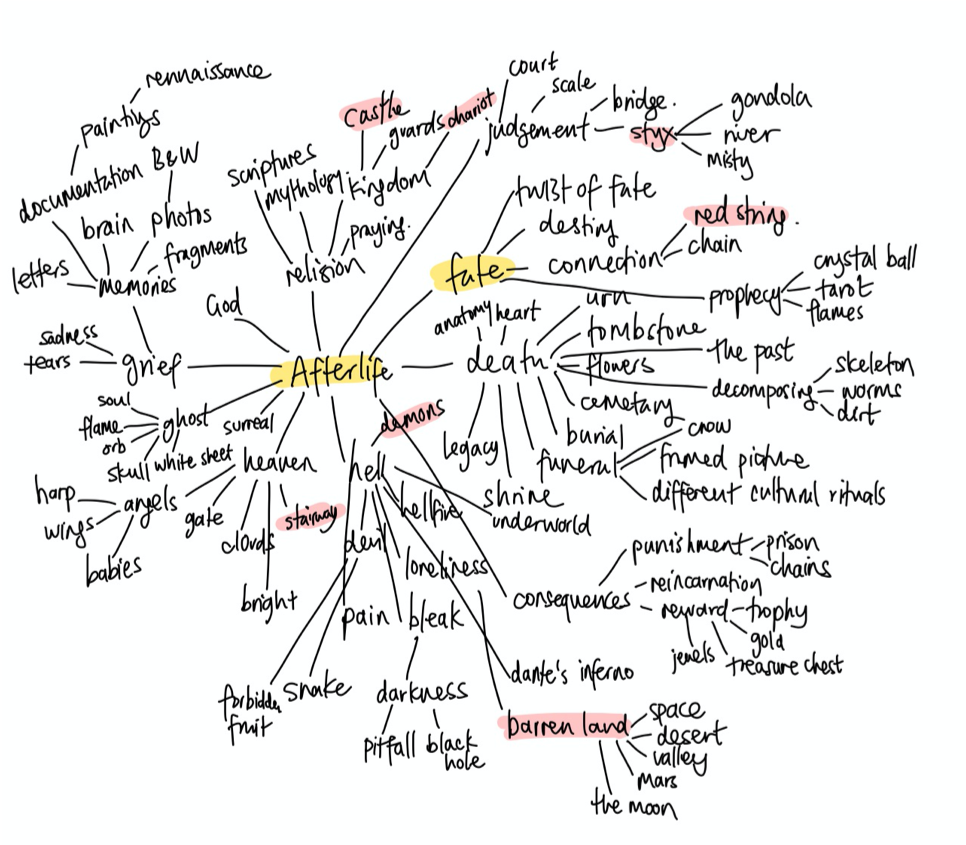 rennaissance
paintings
documentation
B&W
brain
photos
letters
fragments
memories
scriptures
mythology
castle
guards
chariot
kingdom
praying.
religion
court
scale
judgement
bridge.
styx
gondola
river
misty
twist of fate
destiny
fate
connection
red string.
chain
prophecy
crystal ball
tarot
flames
God
sadness
tears
grief
Afterlife
anatomy
heart
urn
death
tombstone
flowers
the past
decomposing
skeleton
worms
dirt
cemetary
burial
legacy
shrine
funeral
crow
framed picture
different cultural rituals
soul
flame
orb
ghost
skull
white sheet
surreal
heaven
harp
wings
angels
babies
gate
clouds
stairway
bright
demons
hell
hellfire
underworld
devil
loneliness
pain
bleak
forbidden
fruit
snake
darkness
pitfall
black
hole
consequences
punishment
prison
chains
reincarnation
reward
trophy
gold
jewels
treasure chest
dante's inferno
barren land
space
desert
valley
Mars
the moon